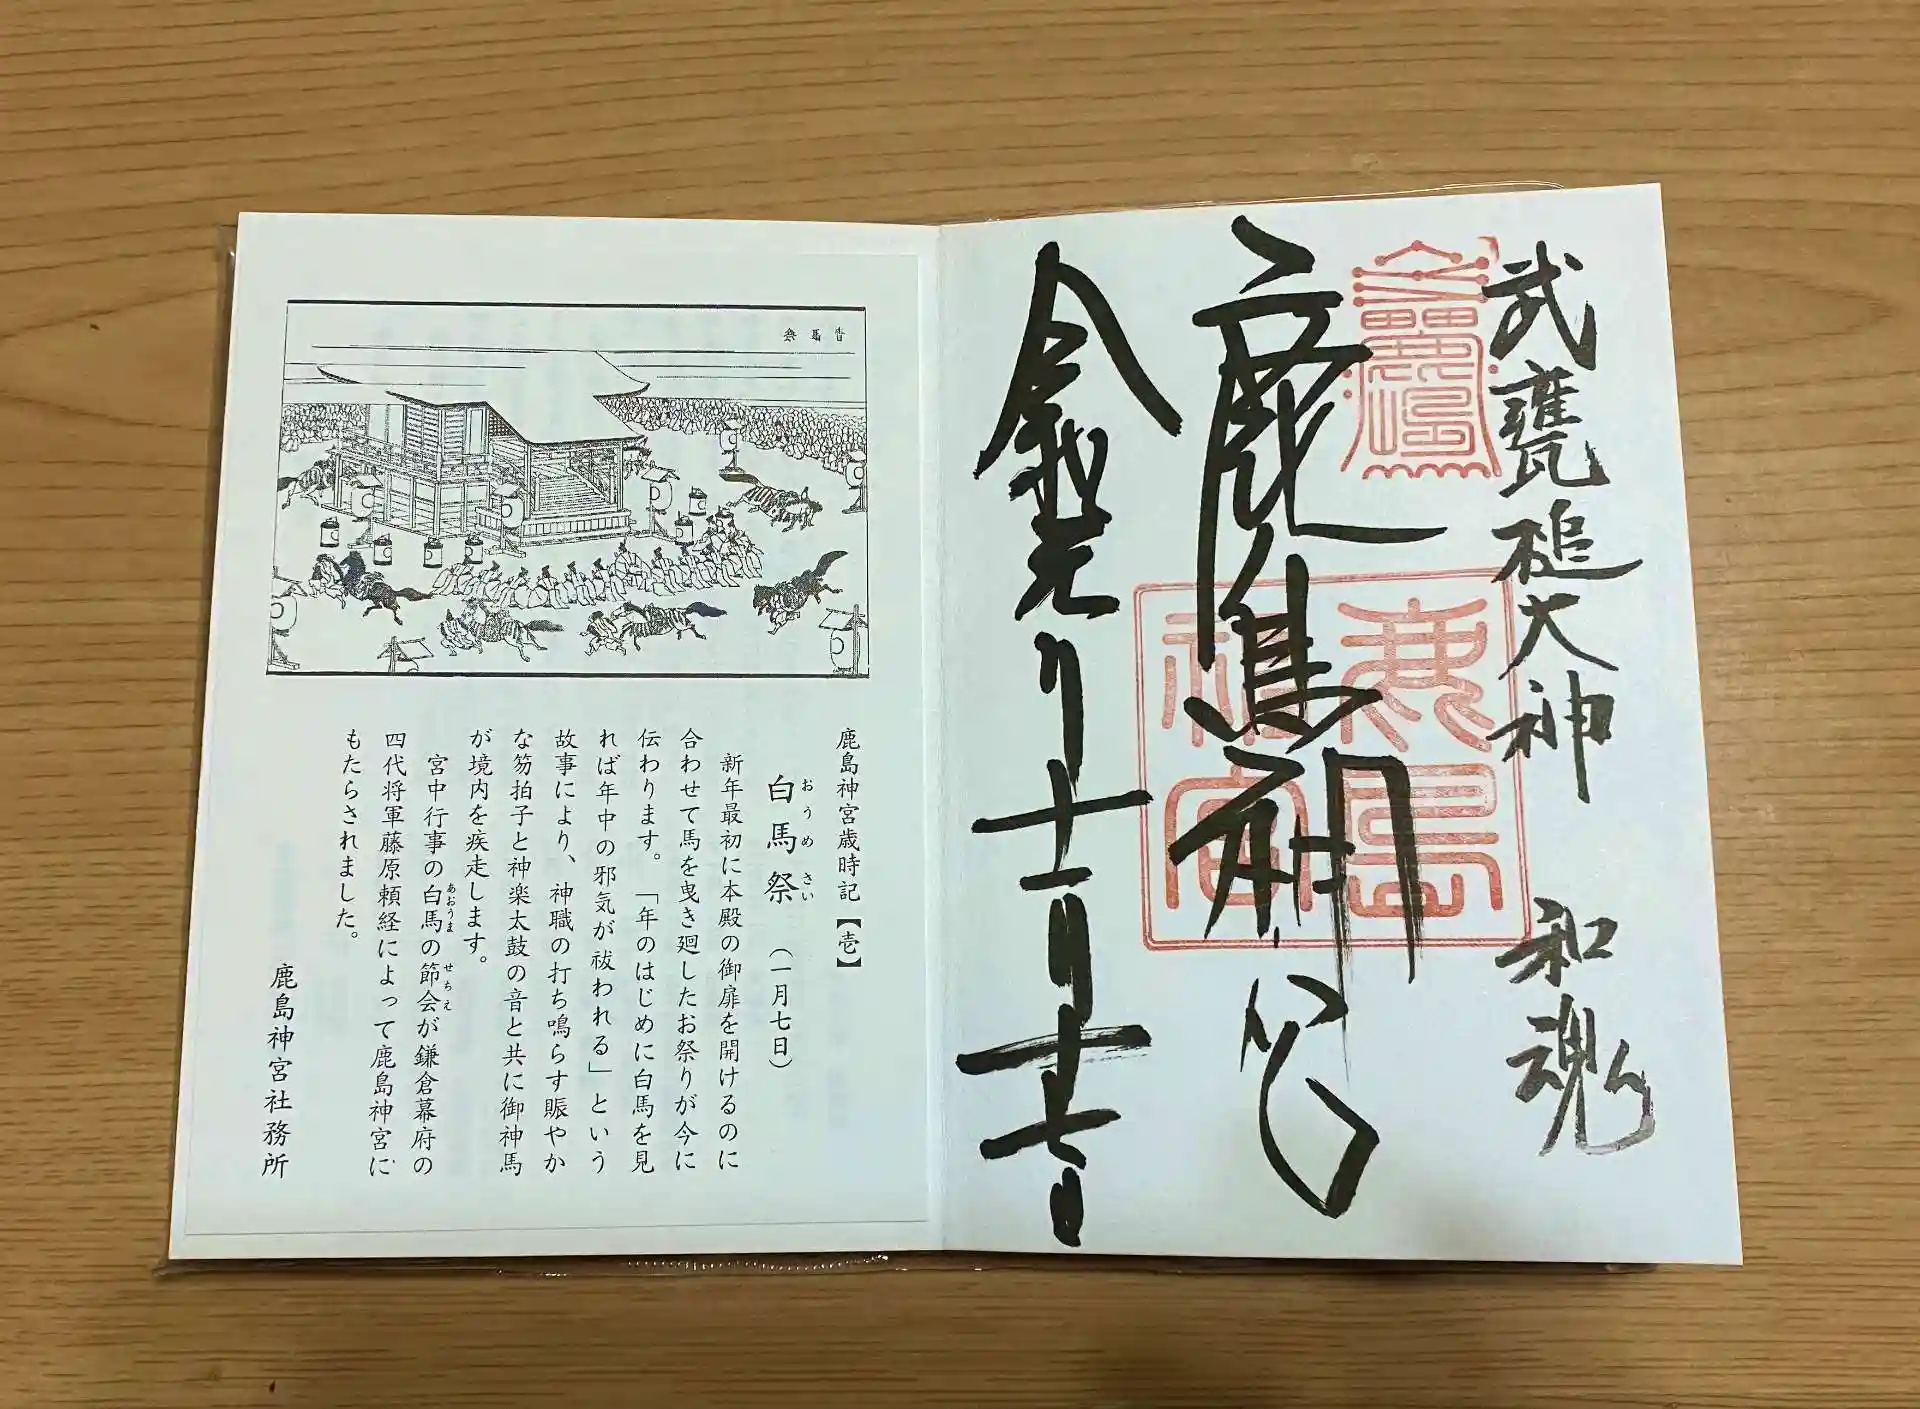 武甕槌大神　和魂
鹿島神宮
鹿島神宮
令和元年十一月十七日
白馬祭
鹿島神宮歳時記【壱】
白馬祭（一月七日）
おうめさい
新年最初に本殿の御扉を開けるのに
合わせて馬を曳き廻したお祭りが今に
伝わります。「年のはじめに白馬を見
れば年中の邪気が祓われる」という
故事により、神職の打ち鳴らす賑やか
な笏拍子と神楽太鼓の音と共に御神馬
が境内を疾走します。
宮中行事の白馬の節会が鎌倉幕府の
あおうま　せちえ
四代将軍藤原頼経によって鹿島神宮に
もたらされました。
鹿島神宮社務所